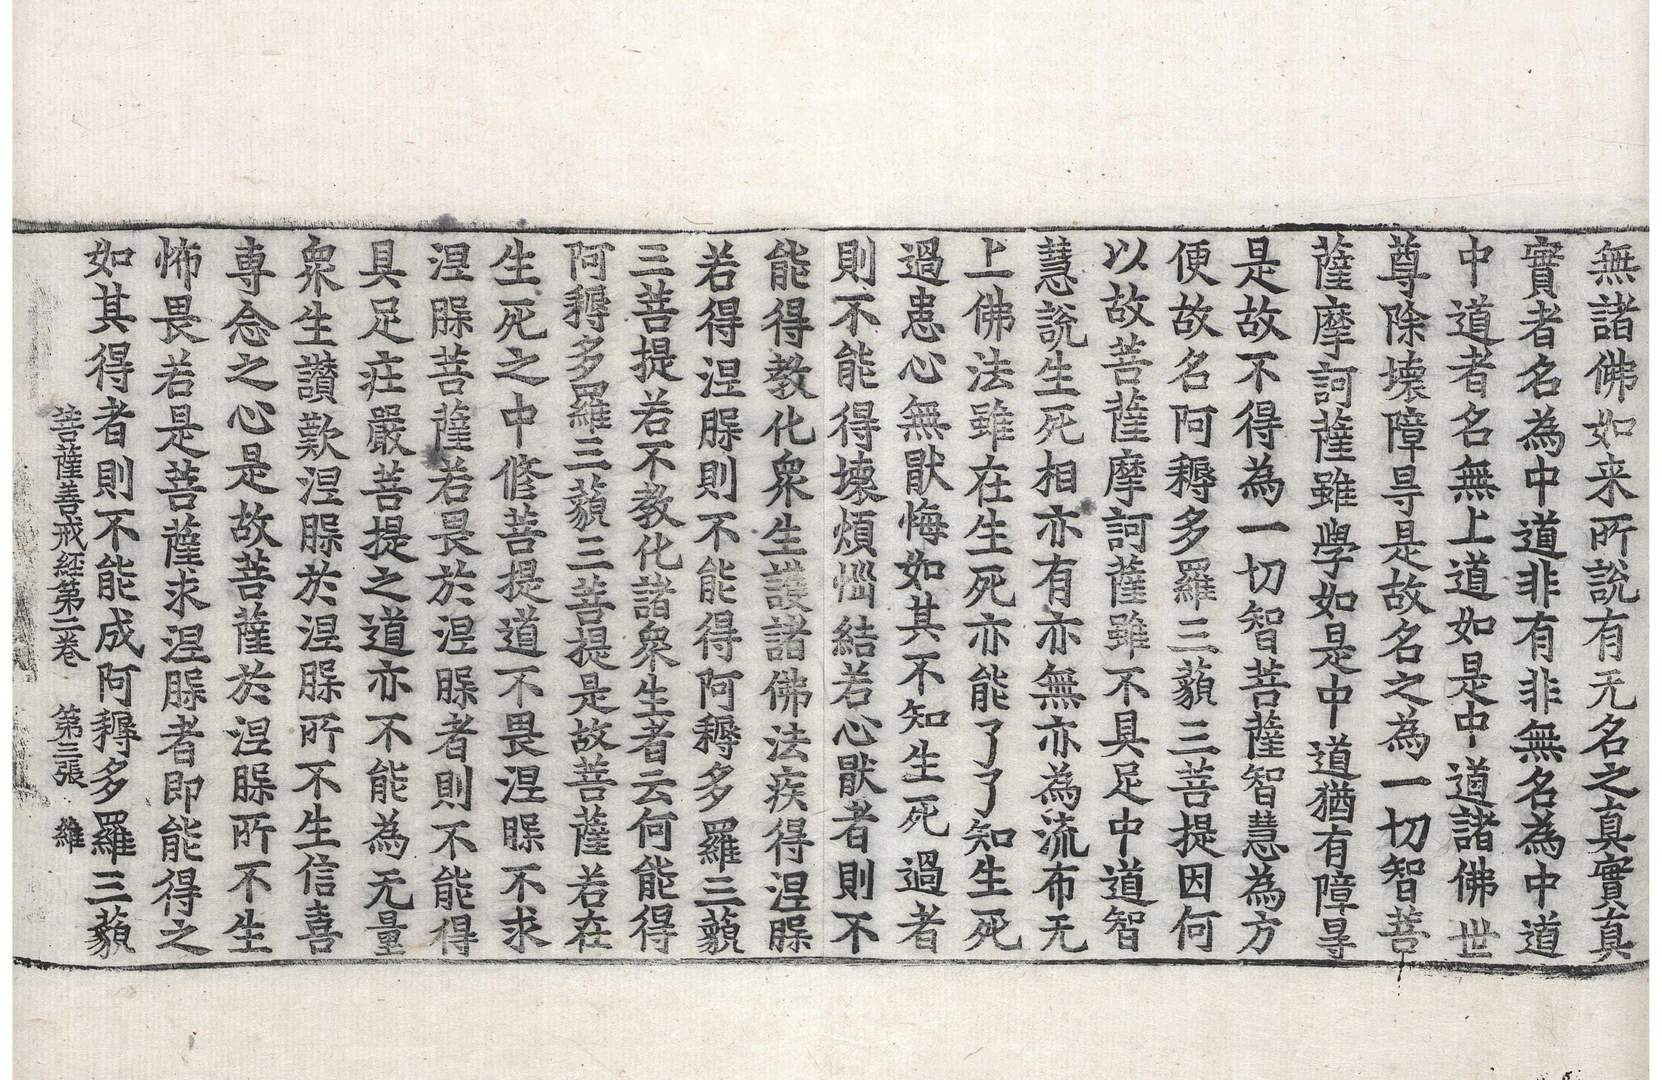 無諸佛如来所說有无名之真實真
實者名為中道非有非無名為中道
中道者名無上道如是中道諸佛世
尊除壞障㝵是故名之為一切智菩
薩摩訶薩雖學如是中道猶有障㝵
是故不得為一切智菩薩智慧為方
便故名阿耨多羅三藐三菩提因何
以故菩薩摩訶薩雖不具足中道智
慧說生死相亦有亦無亦為流布无
上佛法雖在生死亦能了了知生死
過患心無猒悔如其不知生死過者
則不能得壞煩惱結若心猒者則不
能得教化衆生護諸佛法疾得涅槃
若得涅槃則不能得阿耨多羅三藐
三菩提若不教化諸衆生者云何能得
阿耨多羅三藐三菩提是故菩薩若在
生死之中修菩提道不畏涅槃不求
涅槃菩薩若畏於涅槃者則不能得
具足莊嚴菩提之道亦不能為无量
衆生讚歎涅槃於涅槃所不生信喜
專念之心是故菩薩於涅槃所不生
怖畏若是菩薩求涅槃者即能得之
如其得者則不能成阿耨多羅三藐
菩薩善戒經第二卷 第三張 維